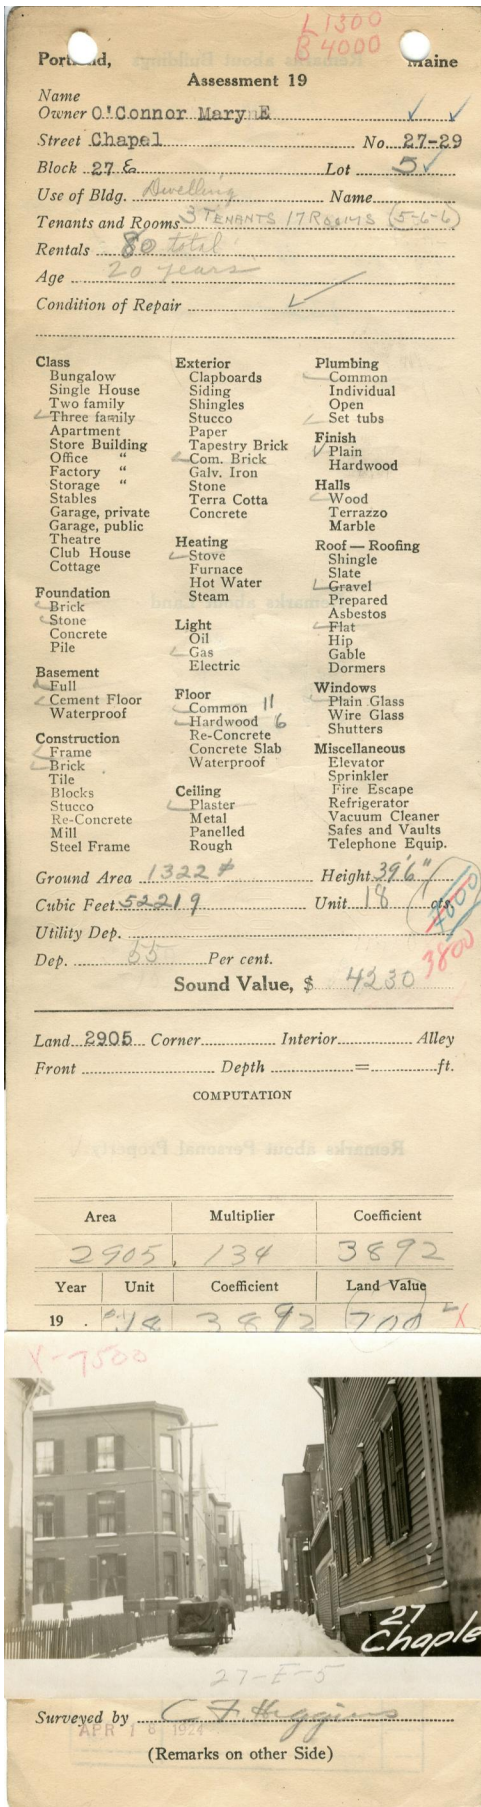 L 1300
B 4000
Portland, Maine
Assessment 19
Name
Owner O'Connor Mary E
Street Chapel No. 27-29
Block 27 E Lot 5
Use of Bldg. Dwelling Name
Tenants and Rooms 3 TENANTS 17 ROOMS (5-6-6)
Rentals 80 total
Age 20 years
Condition of Repair
Class
Bungalow
Single House
Two family
Three family
Apartment
Store Building
Office "
Factory "
Storage "
Stables
Garage, private
Garage, public
Theatre
Club House
Cottage
Foundation
Brick
Stone
Concrete
Pile
Basement
Full
Cement Floor
Waterproof
Construction
Frame
Brick
Tile
Blocks
Stucco
Re-Concrete
Mill
Steel Frame
Exterior
Clapboards
Siding
Shingles
Stucco
Paper
Tapestry Brick
Com. Brick
Galv. Iron
Stone
Terra Cotta
Concrete
Heating
Stove
Furnace
Hot Water
Steam
Light
Oil
Gas
Electric
Floor
Common 11
Hardwood 6
Re-Concrete
Concrete Slab
Waterproof
Ceiling
Plaster
Metal
Panelled
Rough
Plumbing
Common
Individual
Open
Set tubs
Finish
Plain
Hardwood
Halls
Wood
Terrazzo
Marble
Roof — Roofing
Shingle
Slate
Gravel
Prepared
Asbestos
Flat
Hip
Gable
Dormers
Windows
Plain Glass
Wire Glass
Shutters
Miscellaneous
Elevator
Sprinkler
Fire Escape
Refrigerator
Vacuum Cleaner
Safes and Vaults
Telephone Equip.
Ground Area 1322 Height 39'6"
Cubic Feet 52219 Unit 18 cts.
Utility Dep.
3800
Dep. 55 Per cent.
Sound Value, $ 4230
Land 2905 Corner Interior Alley
Front Depth = ft.
COMPUTATION
Area Multiplier Coefficient
2905 134 3892
Year Unit Coefficient Land Value
19 . 18 3892 700 X
X-7500
27
Chaple
27-E-5
Surveyed by C F Higgins
APR 18 1924
(Remarks on other Side)